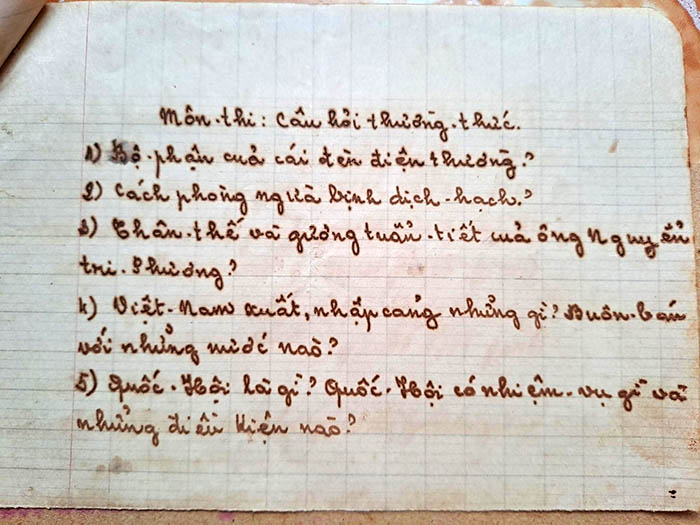 Môn-thi: Câu hỏi thường-thức.
1) Bộ-phận của cái đèn điện thường?
2) Cách phòng ngừa bịnh dịch-hạch?
3) Thân-thế và gương tuẩn-tiết của ông Nguyễn
tri-Phương?
4) Việt-Nam xuất, nhập cảng những gì? Buôn-bán
với những nước nào?
5) Quốc-Hội là gì? Quốc-Hội có nhiệm-vụ gì và
những điều kiện nào?